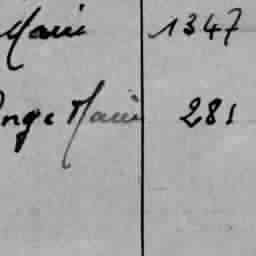 Marie 1347
Ange Marie 281